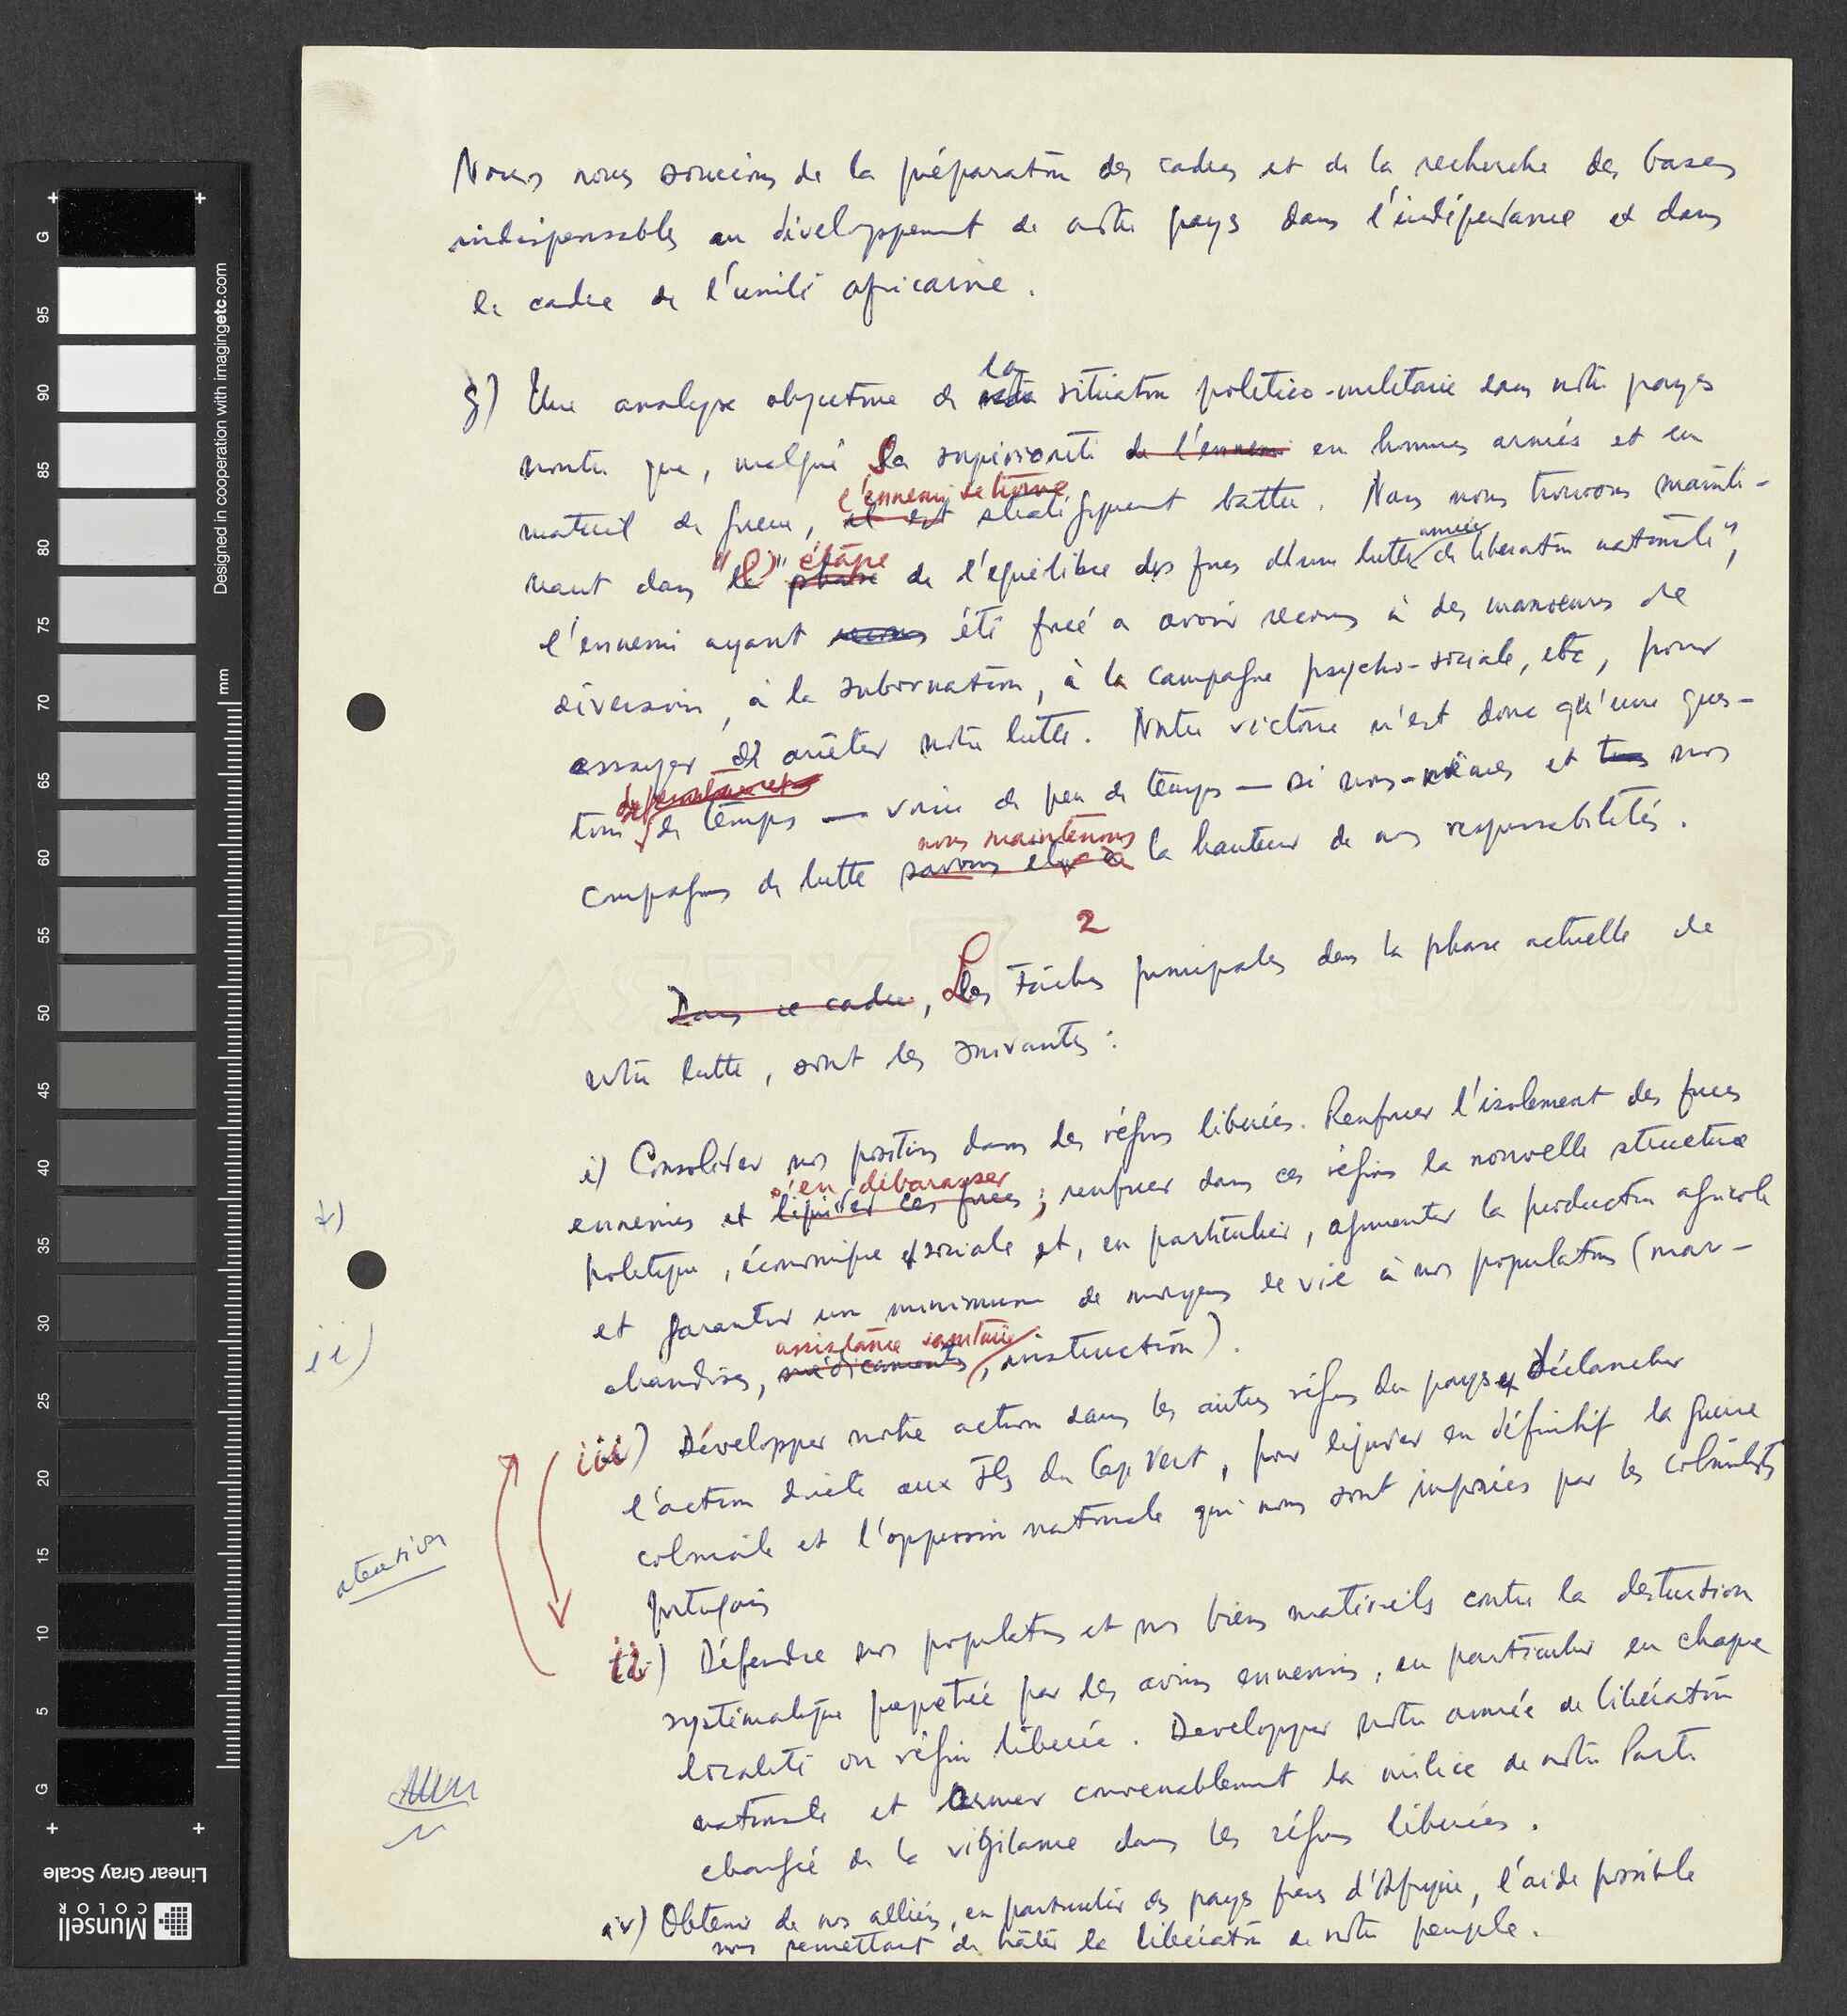 Nous nous soucions de la préparation des cadres et de la recherche des bases
indispensables au développement de notre pays dans l'indépendance et dans
le cadre de l'unité africaine.
la
g) Une analyse objective de situation politico-militaire dans notre pays
montre que, malgré sa supériorité de l'ennemi en hommes armés et en
l'ennemi se trouve
matériel de guerre, il est stratégiquement battu. Nous nous trouvons mainte-
"l' étape armée
nant dans le phase de l'équilibre des forces d'une lutte de libération nationale",
l'ennemi ayant recours été forcé a avoir recours à des manoeuvres de
diversion, à la subornation, à la campagne psycho-sociale, etc, pour
essayer d'arrêter notre lutte. Notre victoire n'est donc qu'une ques-
tion de temps — voire de peu de temps — si nous-mêmes et tous nos
nous maintenons
compagnons de lutte savons être à la hauteur de nos responsabilités.
2
Dans ce cadre, Les Tâches principales dans la phase actuelle de
notre lutte, sont les suivantes:
i) Consolider nos positions dans les régions libérées. Renforcer l'isolement des forces
s'en débarasser
ennemies et liquider ces forces; renforcer dans ces régions la nouvelle structure
politique, économique et sociale et, en particulier, augmenter la production agricole
et garantir un minimum de moyens de vie à nos populations (mar-
assistance sanitaire
chandises, médicaments, instruction).
ii)
iii) Développer notre action dans les autres régions du pays et Déclancher
l'action directe aux Iles du Cap Vert, pour liquider en définitif la guerre
coloniale et l'oppression nationale qui nous sont imposées par les colonialistes
portugais
atention
ii) Défendre nos populations et nos biens matériels contre la destruction
systématique perpétrée par les avions ennemis, en particulier en chaque
localité ou région libérée. Developper notre armée de libération
nationale et armer convenablement la milice de notre Parti
chargée de la vigilance dans les régions libérées.
iv) Obtenir de nos alliés, en particulier des pays frères d'Afrique, l'aide possible
nous permettant de hâter la libération de notre peuple.
Designed in cooperation with imagingetc.com
mm
G 95 90 85 80 75 70 65 60 55 50 45 40 35 30 25 20 15 10 5 G
Linear Gray Scale
Munsell
COLOR